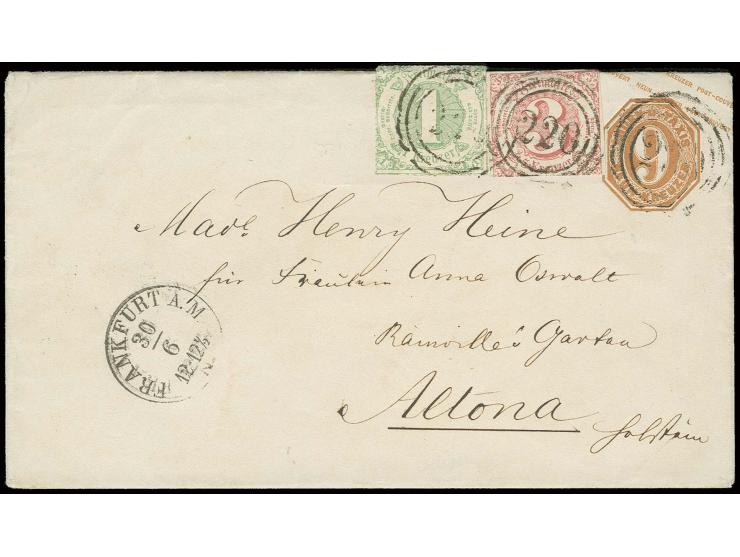 COUVERT NEUN KREUZER POST-COUVERT
1
3
220
9
TAXIS
KREUZER
Madᵉ Henry Heine
für Fräulein Anna Oswalt
Rainville's Garten
Altona
Holstein
FRANKFURT A. M.
30
6
12-12½
N.